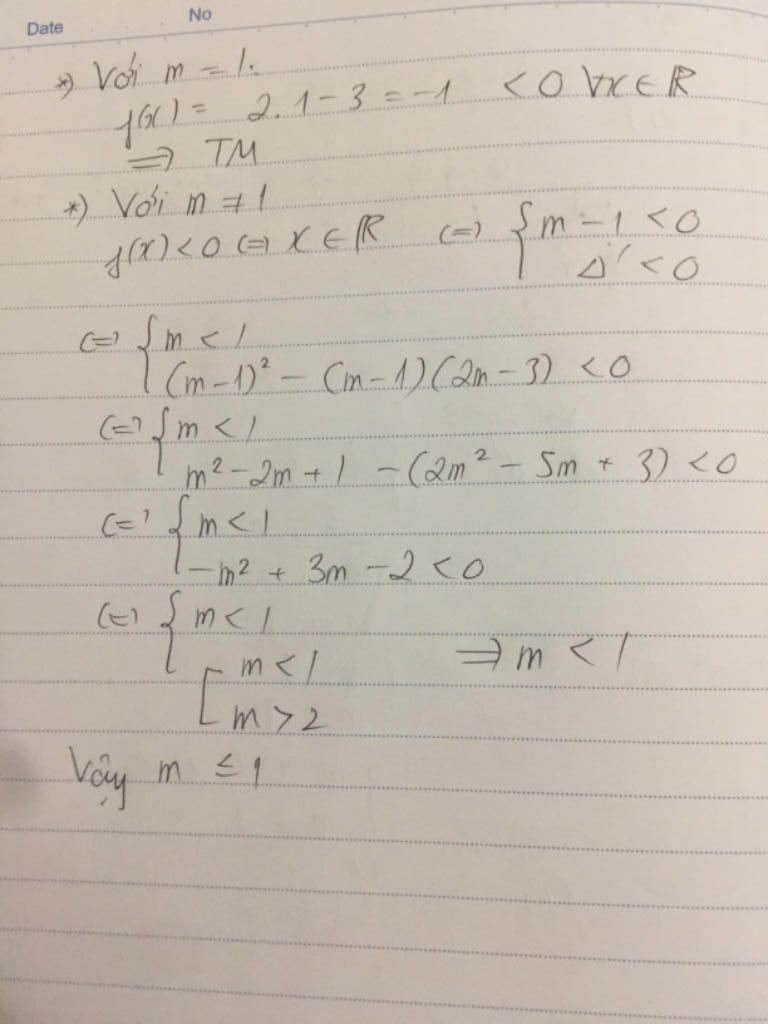 Date No
*) Với m = 1:
f(x) = 2.1 - 3 = -1 < 0 ∀x ∈ ℝ
=> TM
*) Với m ≠ 1
f(x) < 0 (=) x ∈ ℝ (=) { m - 1 < 0
Δ' < 0
(=) { m < 1
(m - 1)² - (m - 1)(2m - 3) < 0
(=) { m < 1
m² - 2m + 1 - (2m² - 5m + 3) < 0
(=) { m < 1
-m² + 3m - 2 < 0
(=) { m < 1
[ m < 1 => m < 1
m > 2
Vậy m ≤ 1